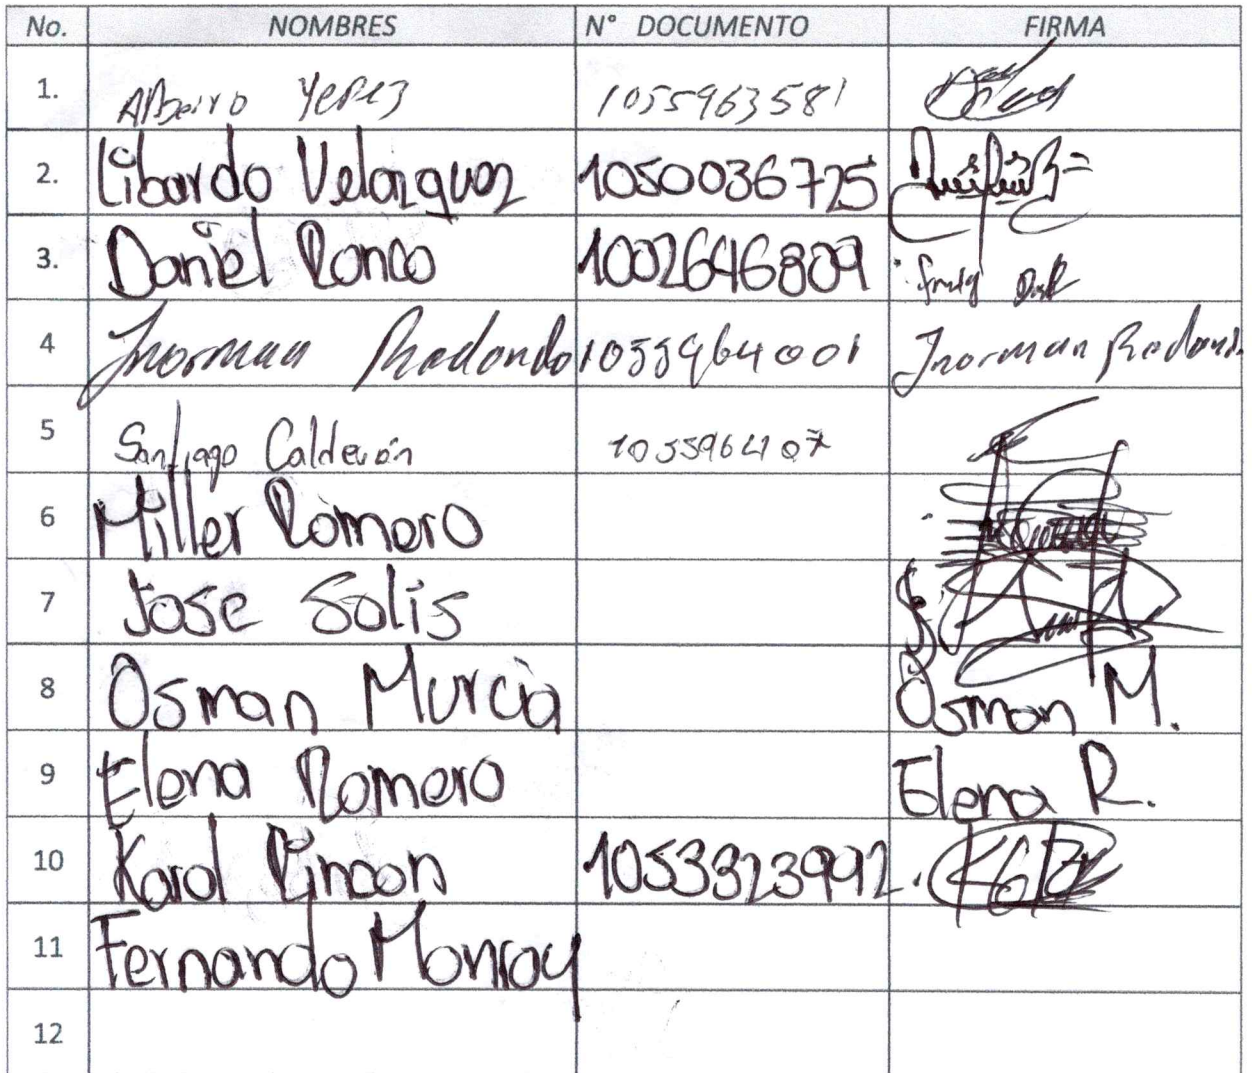 No. NOMBRES N° DOCUMENTO FIRMA
1. Albeiro Yepez 1055963581
2. Libardo Velazquez 1050036725
3. Daniel Ronco 1002646809
4 Jnorman Redondo 1055964001 Jnorman Redondo
5 Santiago Calderón
6 Miller Romero
7 Jose Solis
8 Osman Murcia Osman M.
9 Elena Romero Elena R.
10 Karol Rincon 1053323992.
11 Fernando Monroy
12